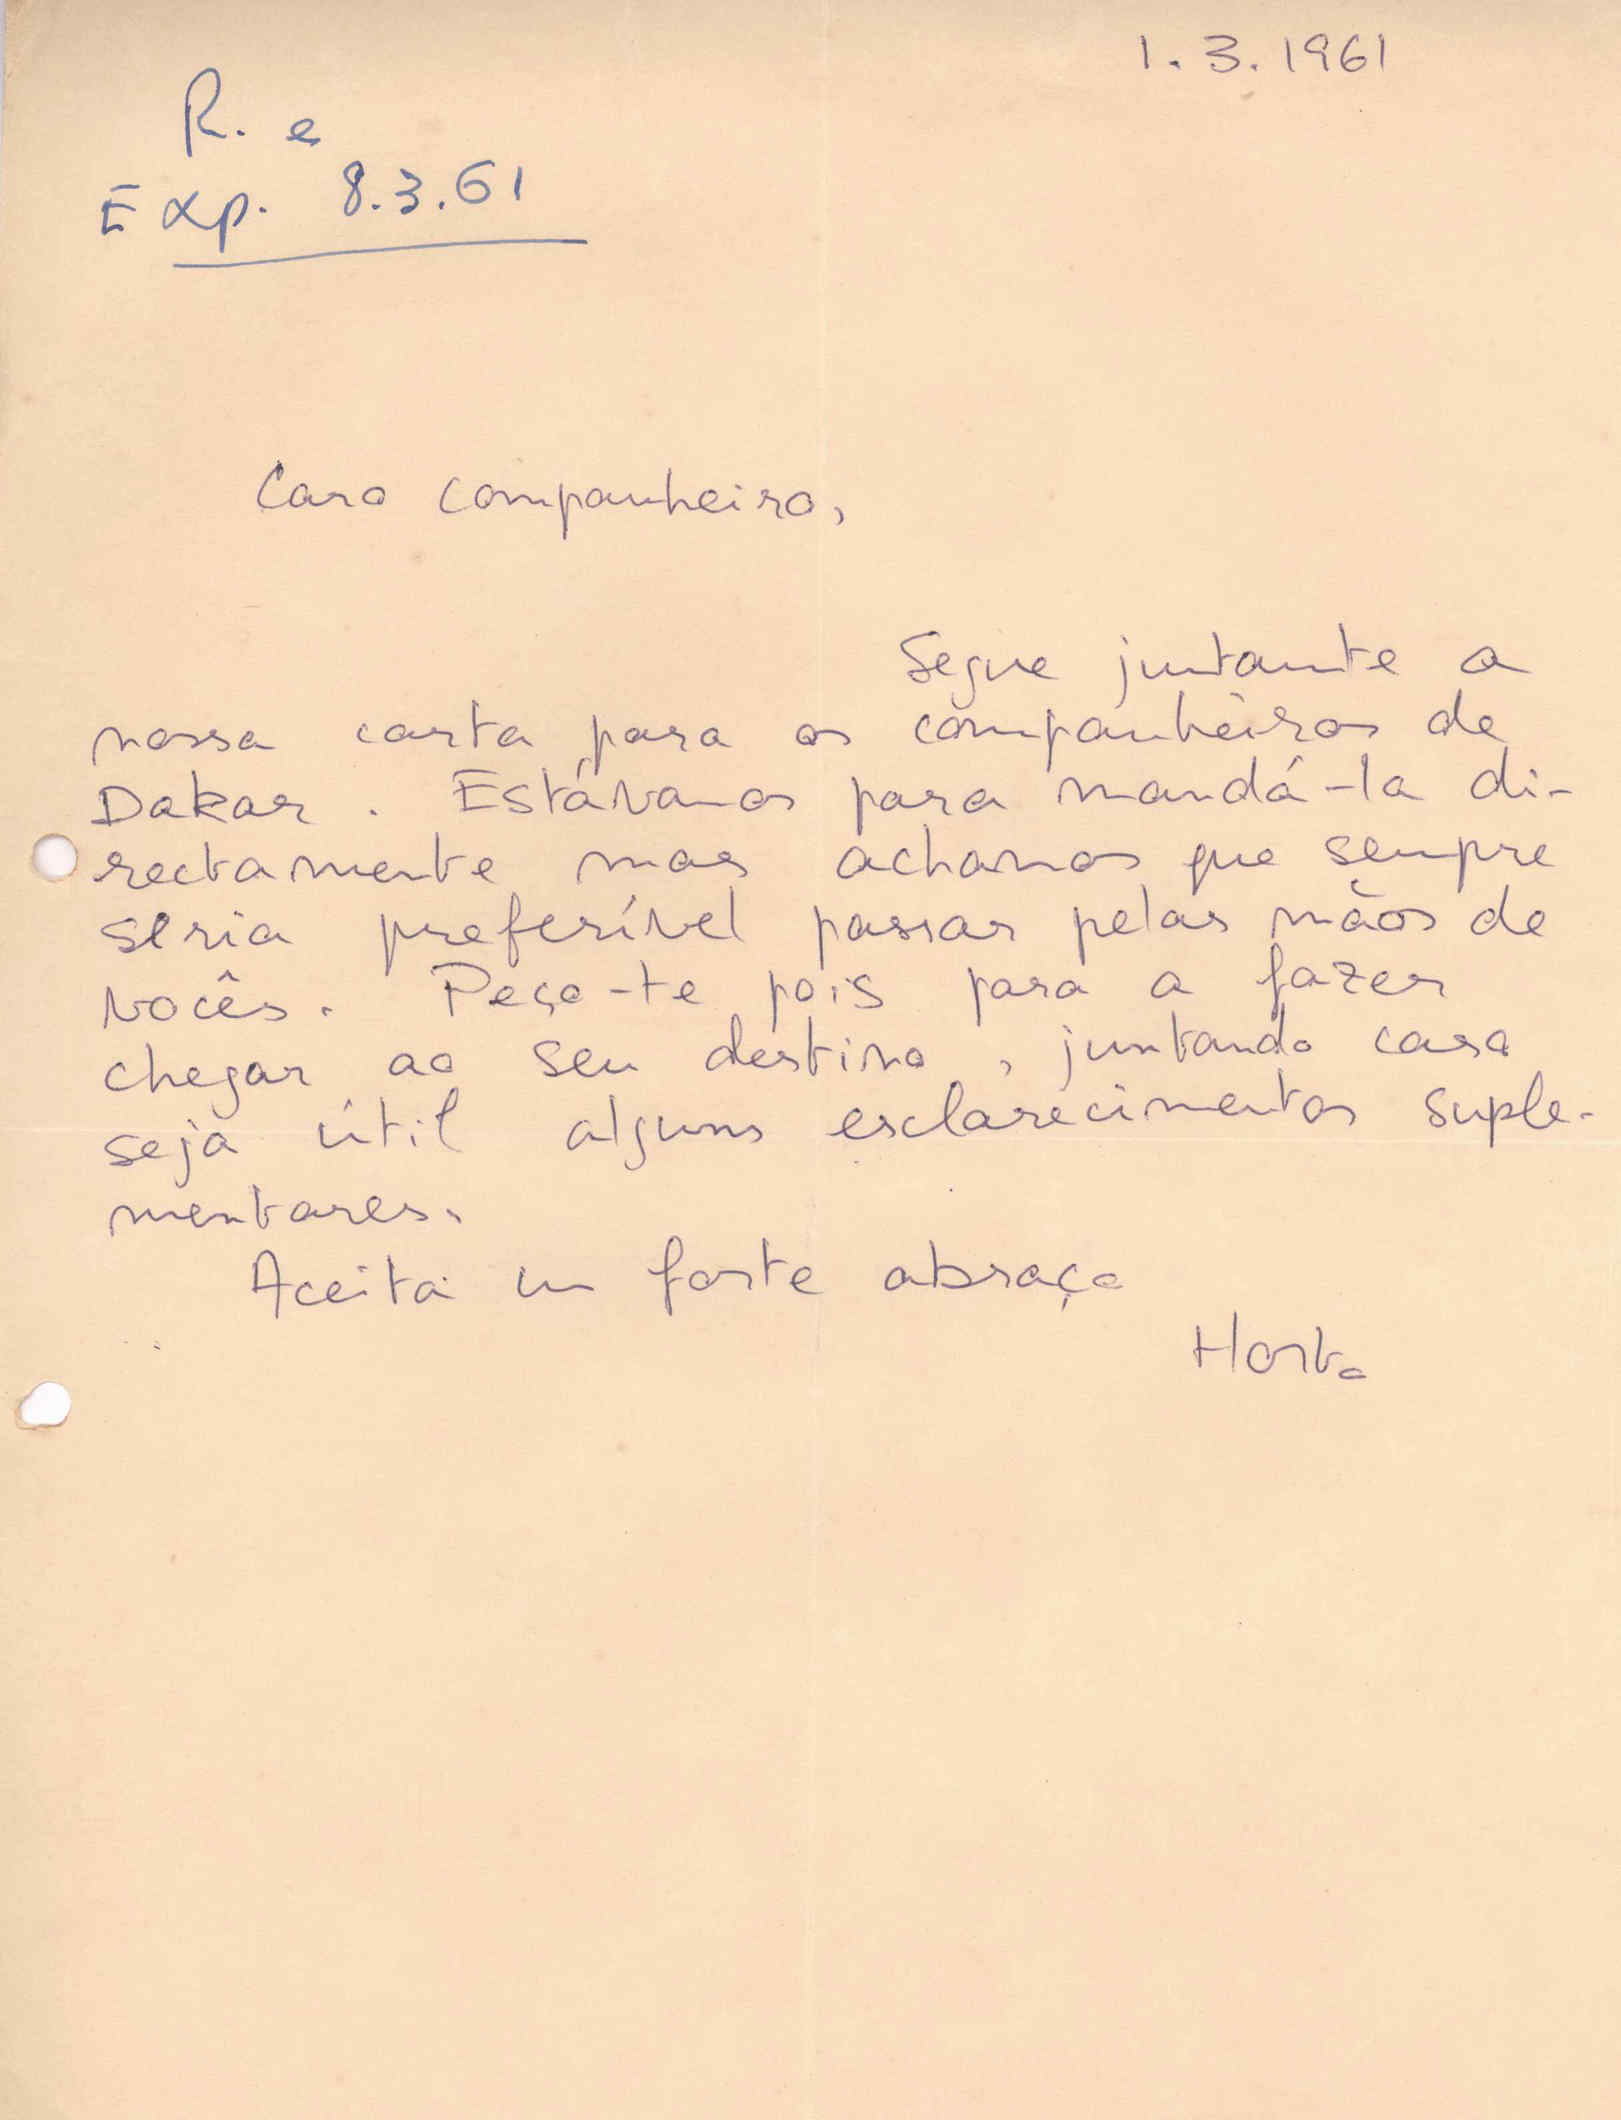 1.3.1961
R. e
Exp. 8.3.61
Caro companheiro,
Segue juntante a
nossa carta para os companheiros de
Dakar. Estávamos para mandá-la di-
rectamente mas achamos que sempre
seria preferível passar pelas mãos de
vocês. Peço-te pois para a fazer
chegar ao seu destino, juntando caso
seja útil alguns esclarecimentos suple-
mentares.
Aceita um forte abraço
Horta